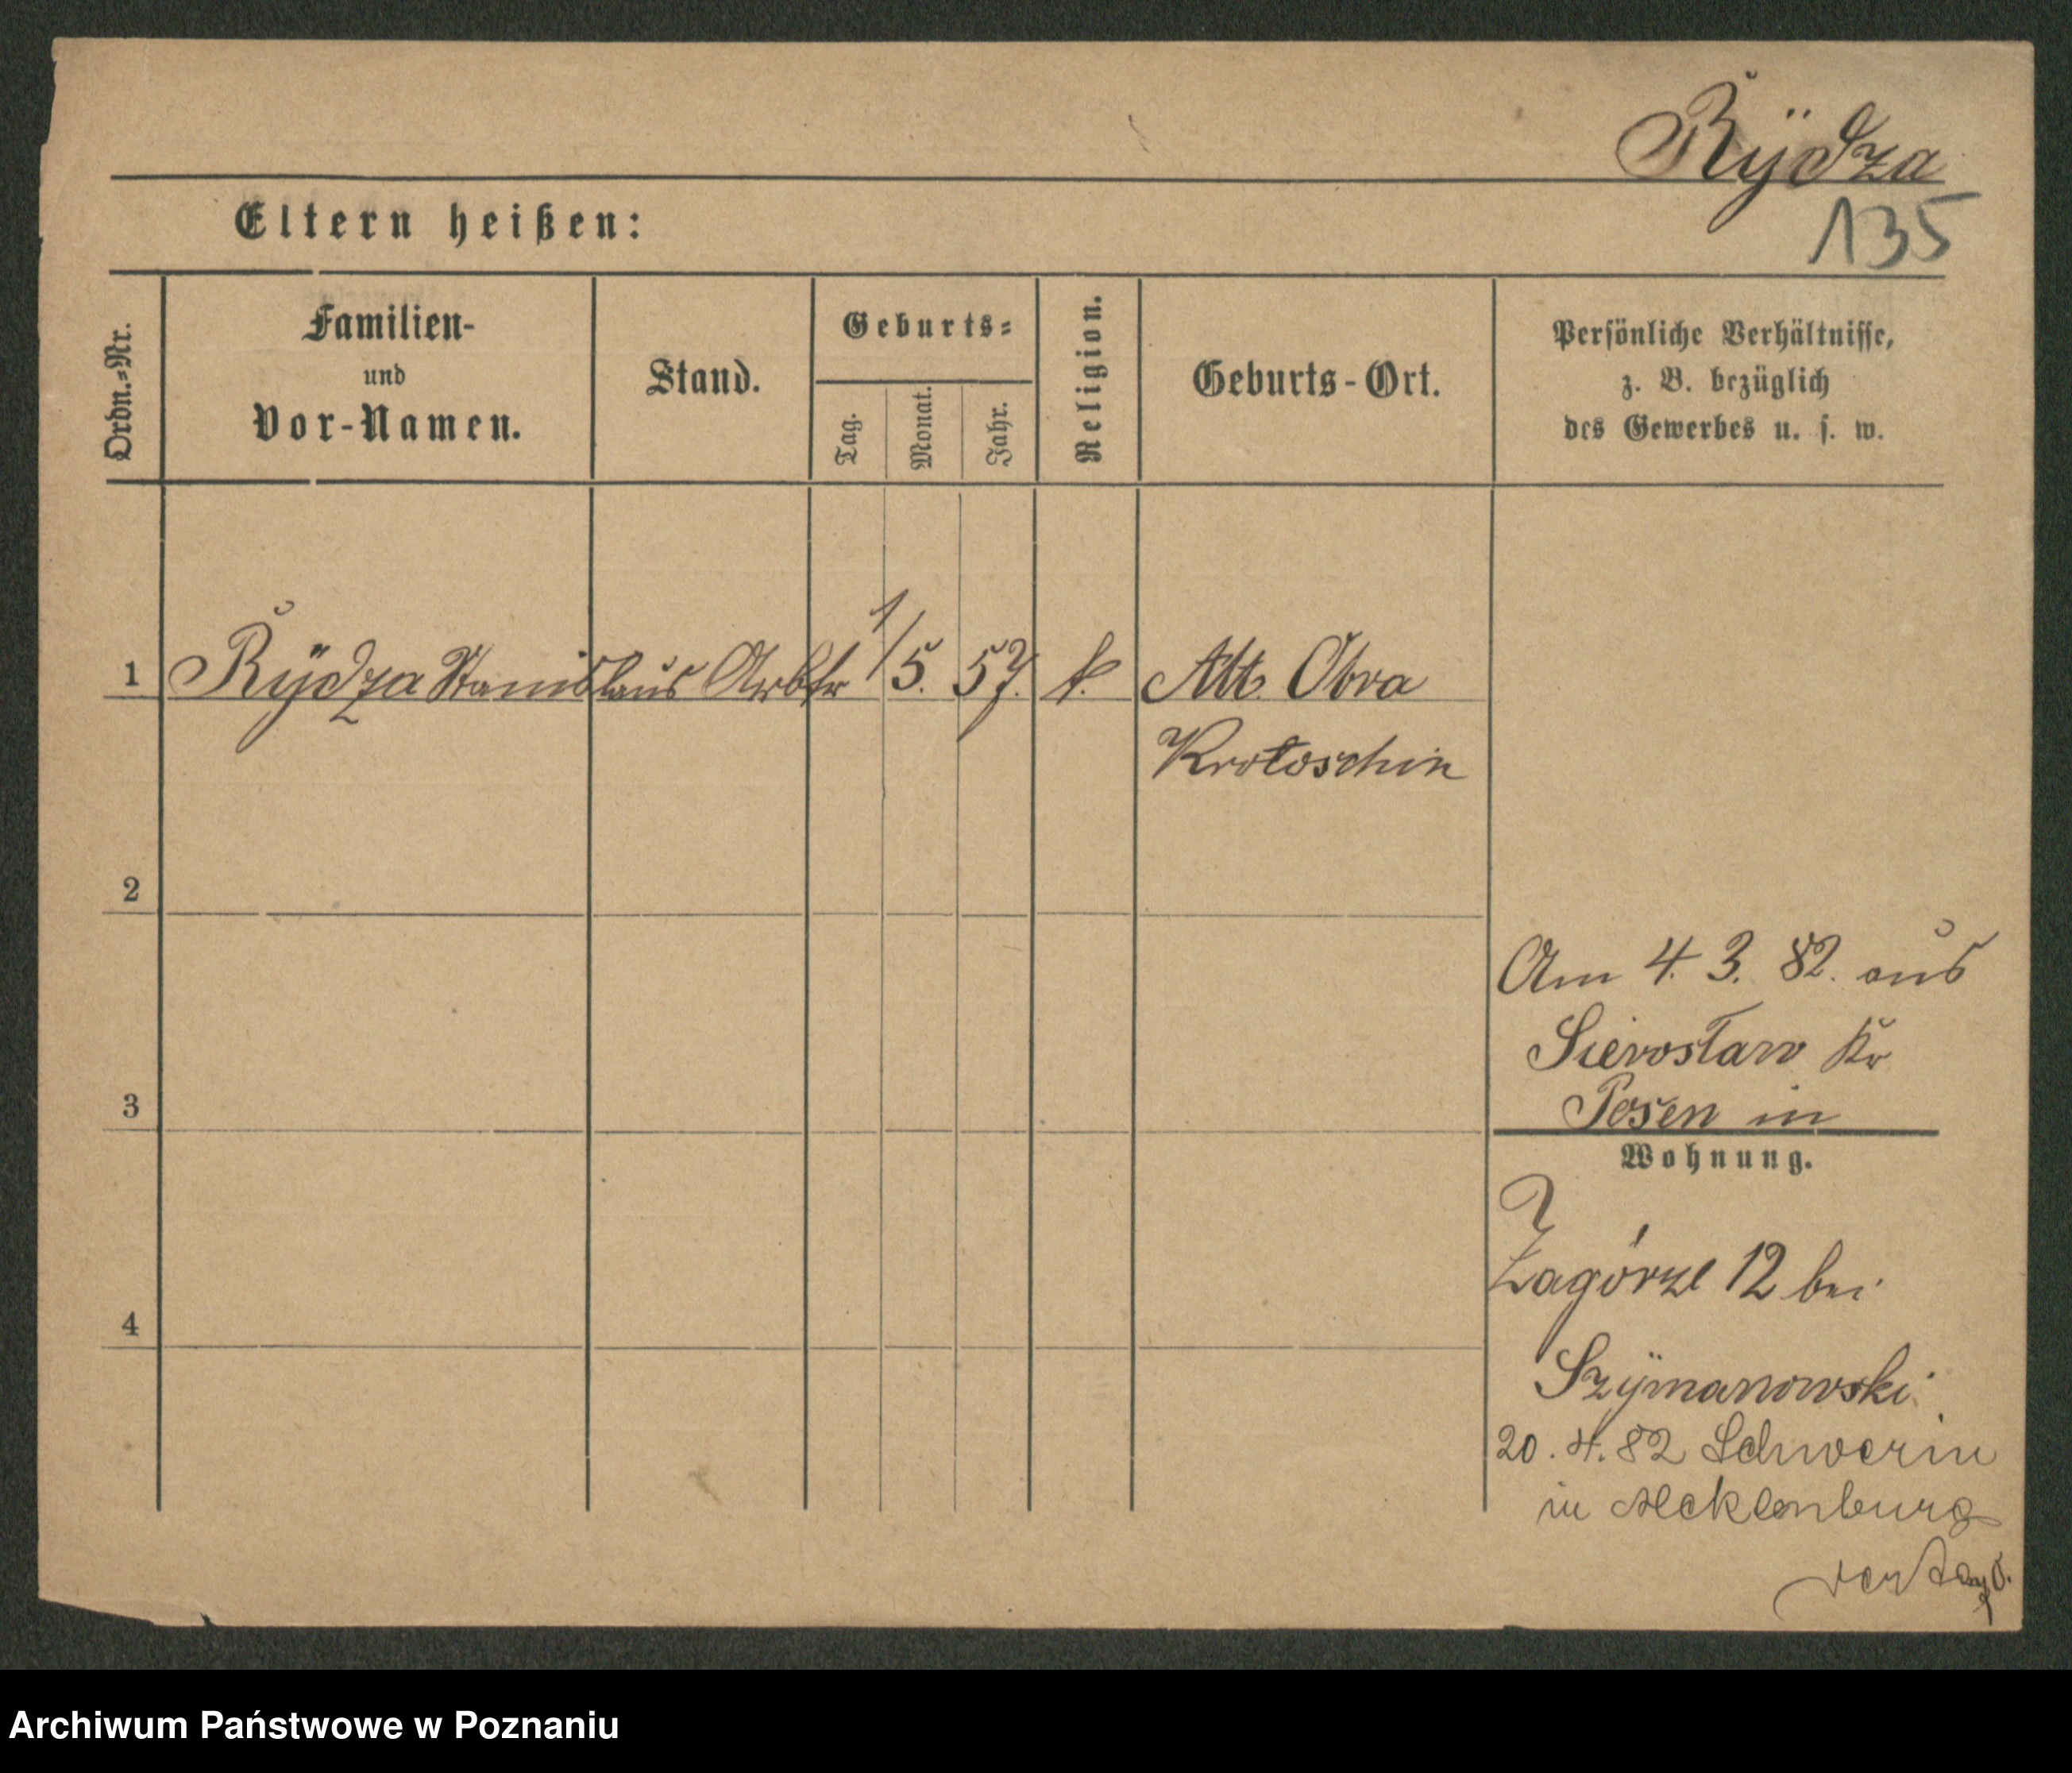 Rÿdza
135
Eltern heißen:
Ordn.-Nr.
Familien-
und
Vor-Namen.
Stand.
Geburts-
Tag.
Monat.
Jahr.
Religion.
Geburts-Ort.
Persönliche Verhältnisse,
z. B. bezüglich
des Gewerbes u. s. w.
1 Rÿdza Stanislaus Arbtr 1/5. 57. k. Alt Obra
Krotoschin
2
Am 4. 3. 82. aus
Sierosław Kr
3
Posen in
Wohnung.
Zagórze 12 bei
4
Szÿmanowski
20. 4. 82 Schwerin
in Mecklenburg
Archiwum Państwowe w Poznaniu